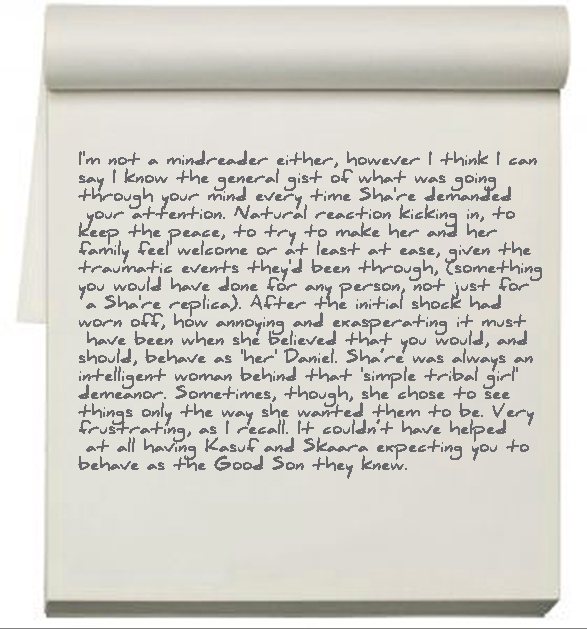 I'm not a mindreader either, however I think I can
say I know the general gist of what was going
through your mind every time Sha're demanded
your attention. Natural reaction kicking in, to
keep the peace, to try to make her and her
family feel welcome or at least at ease, given the
traumatic events they'd been through, (something
you would have done for any person, not just for
a Sha're replica). After the initial shock had
worn off, how annoying and exasperating it must
have been when she believed that you would, and
should, behave as 'her' Daniel. Sha're was always an
intelligent woman behind that 'simple tribal girl'
demeanor. Sometimes, though, she chose to see
things only the way she wanted them to be. Very
frustrating, as I recall. It couldn't have helped
at all having Kasuf and Skaara expecting you to
behave as the Good Son they knew.